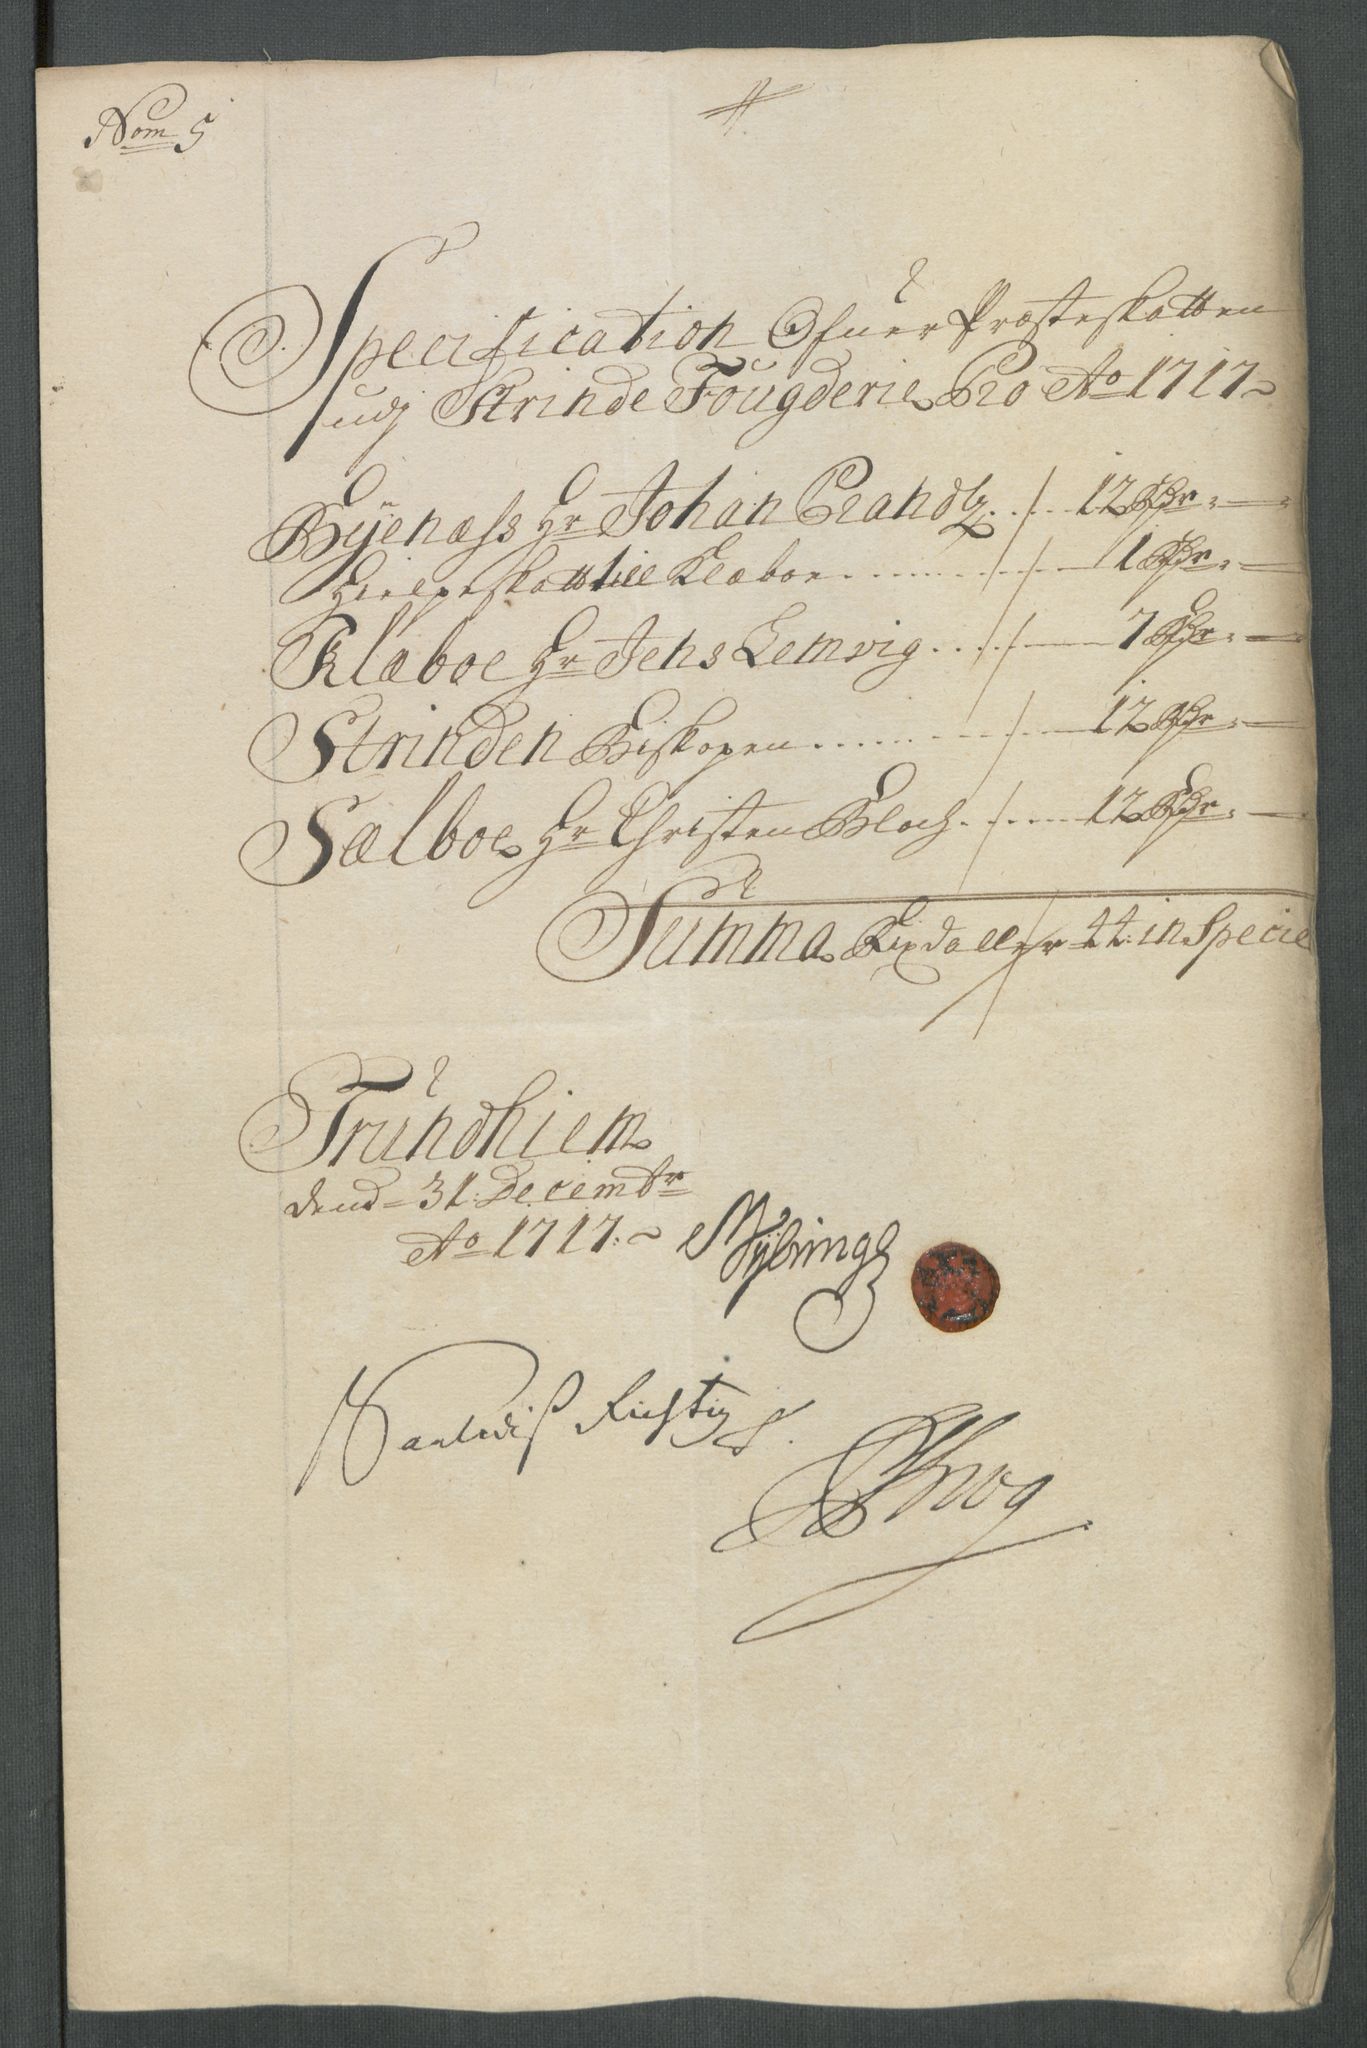 Nom 5
Specification Ofuer Præsteskatten
udj Strinde Fougderie Pro Ao 1717
Byenæss Hr Johan Prandtz 12 Rdr
Hielpeskatt till Klæboe 1 Rdr
Klæboe Hr Jens Lemvig 7 Rdr
Strinden Biskopen 12 Rdr
Sælboe Hr Christen Bloch 12 Rdr
Summa Rixdaller 44: in Specie
Trundhiem
dend 31: Decembr
Ao 1717
Richtig